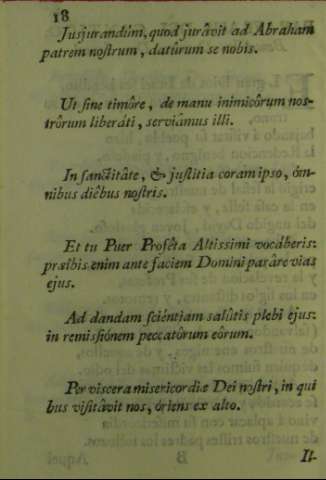 18
Jusjurandúm, quod jurâvit ad Abraham
patrem nostrum, datûrum se nobis.
Ut sine timôre, de manu inimicôrum nos-
trôrum liberáti, serviámus illi.
In sanctitâte, & justitia coram ipso, óm-
nibus diêbus nostris.
Et tu Puer Proféta Altissimi vocáberis:
præíbis enim ante faciem Domini paráre vias
ejus.
Ad dandam sciéntiam salútis plebi ejus:
in remissiónem peccatórum eôrum.
Per viscera misericordiæ Dei nostri, in qui
bus visitâvit nos, óriens ex alto.
Il-